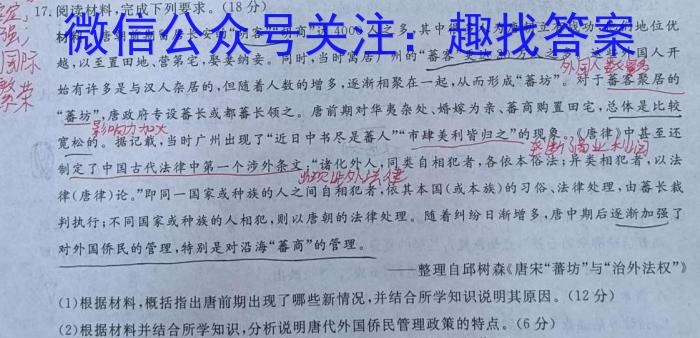 17.阅读材料,完成下列要求。(18分)
微信公众号关注：趣找答案
材料 唐朝前期留居长安的“胡客”“胡商”达4000人之多,其中很 地位优
越,以至置田地、营第宅,娶妻纳妾。同时,当时寓居广州的“蕃客 国人开
始有许多是与汉人杂居的,但随着人数的增多,逐渐相聚在一起,从而形成“蕃坊”。对于蕃客聚居的
“蕃坊”,唐政府专设蕃长或都蕃长领之。唐前期对华夷杂处、婚嫁为亲、蕃商购置田宅,总体是比较
宽松的。据记载,当时广州出现了“近日中书尽是蕃人”“市肆美利皆归之”的现象。《唐律》中甚至还
制定了中国古代法律中第一个涉外条文:“诸化外人,同类自相犯者,各依本俗法;异类相犯者,以法
律(唐律)论。”即同一国家或种族的人之间自相犯者,依其本国(或本族)的习俗、法律处理,由蕃长裁
判执行;不同国家或种族的人相犯,则以唐朝的法律处理。随着纠纷日渐增多,唐中期后逐渐加强了
对外国侨民的管理,特别是对沿海“蕃商”的管理。
——整理自邱树森《唐宋“蕃坊”与“治外法权”》
(1)根据材料,概括指出唐前期出现了哪些新情况,并结合所学知识说明其原因。(12分)
(2)根据材料并结合所学知识,分析说明唐代外国侨民管理政策的特点。(6分)
强,
国际
繁荣
外国人数量多
影响力加大
垄断了商业利润
出现涉外法律